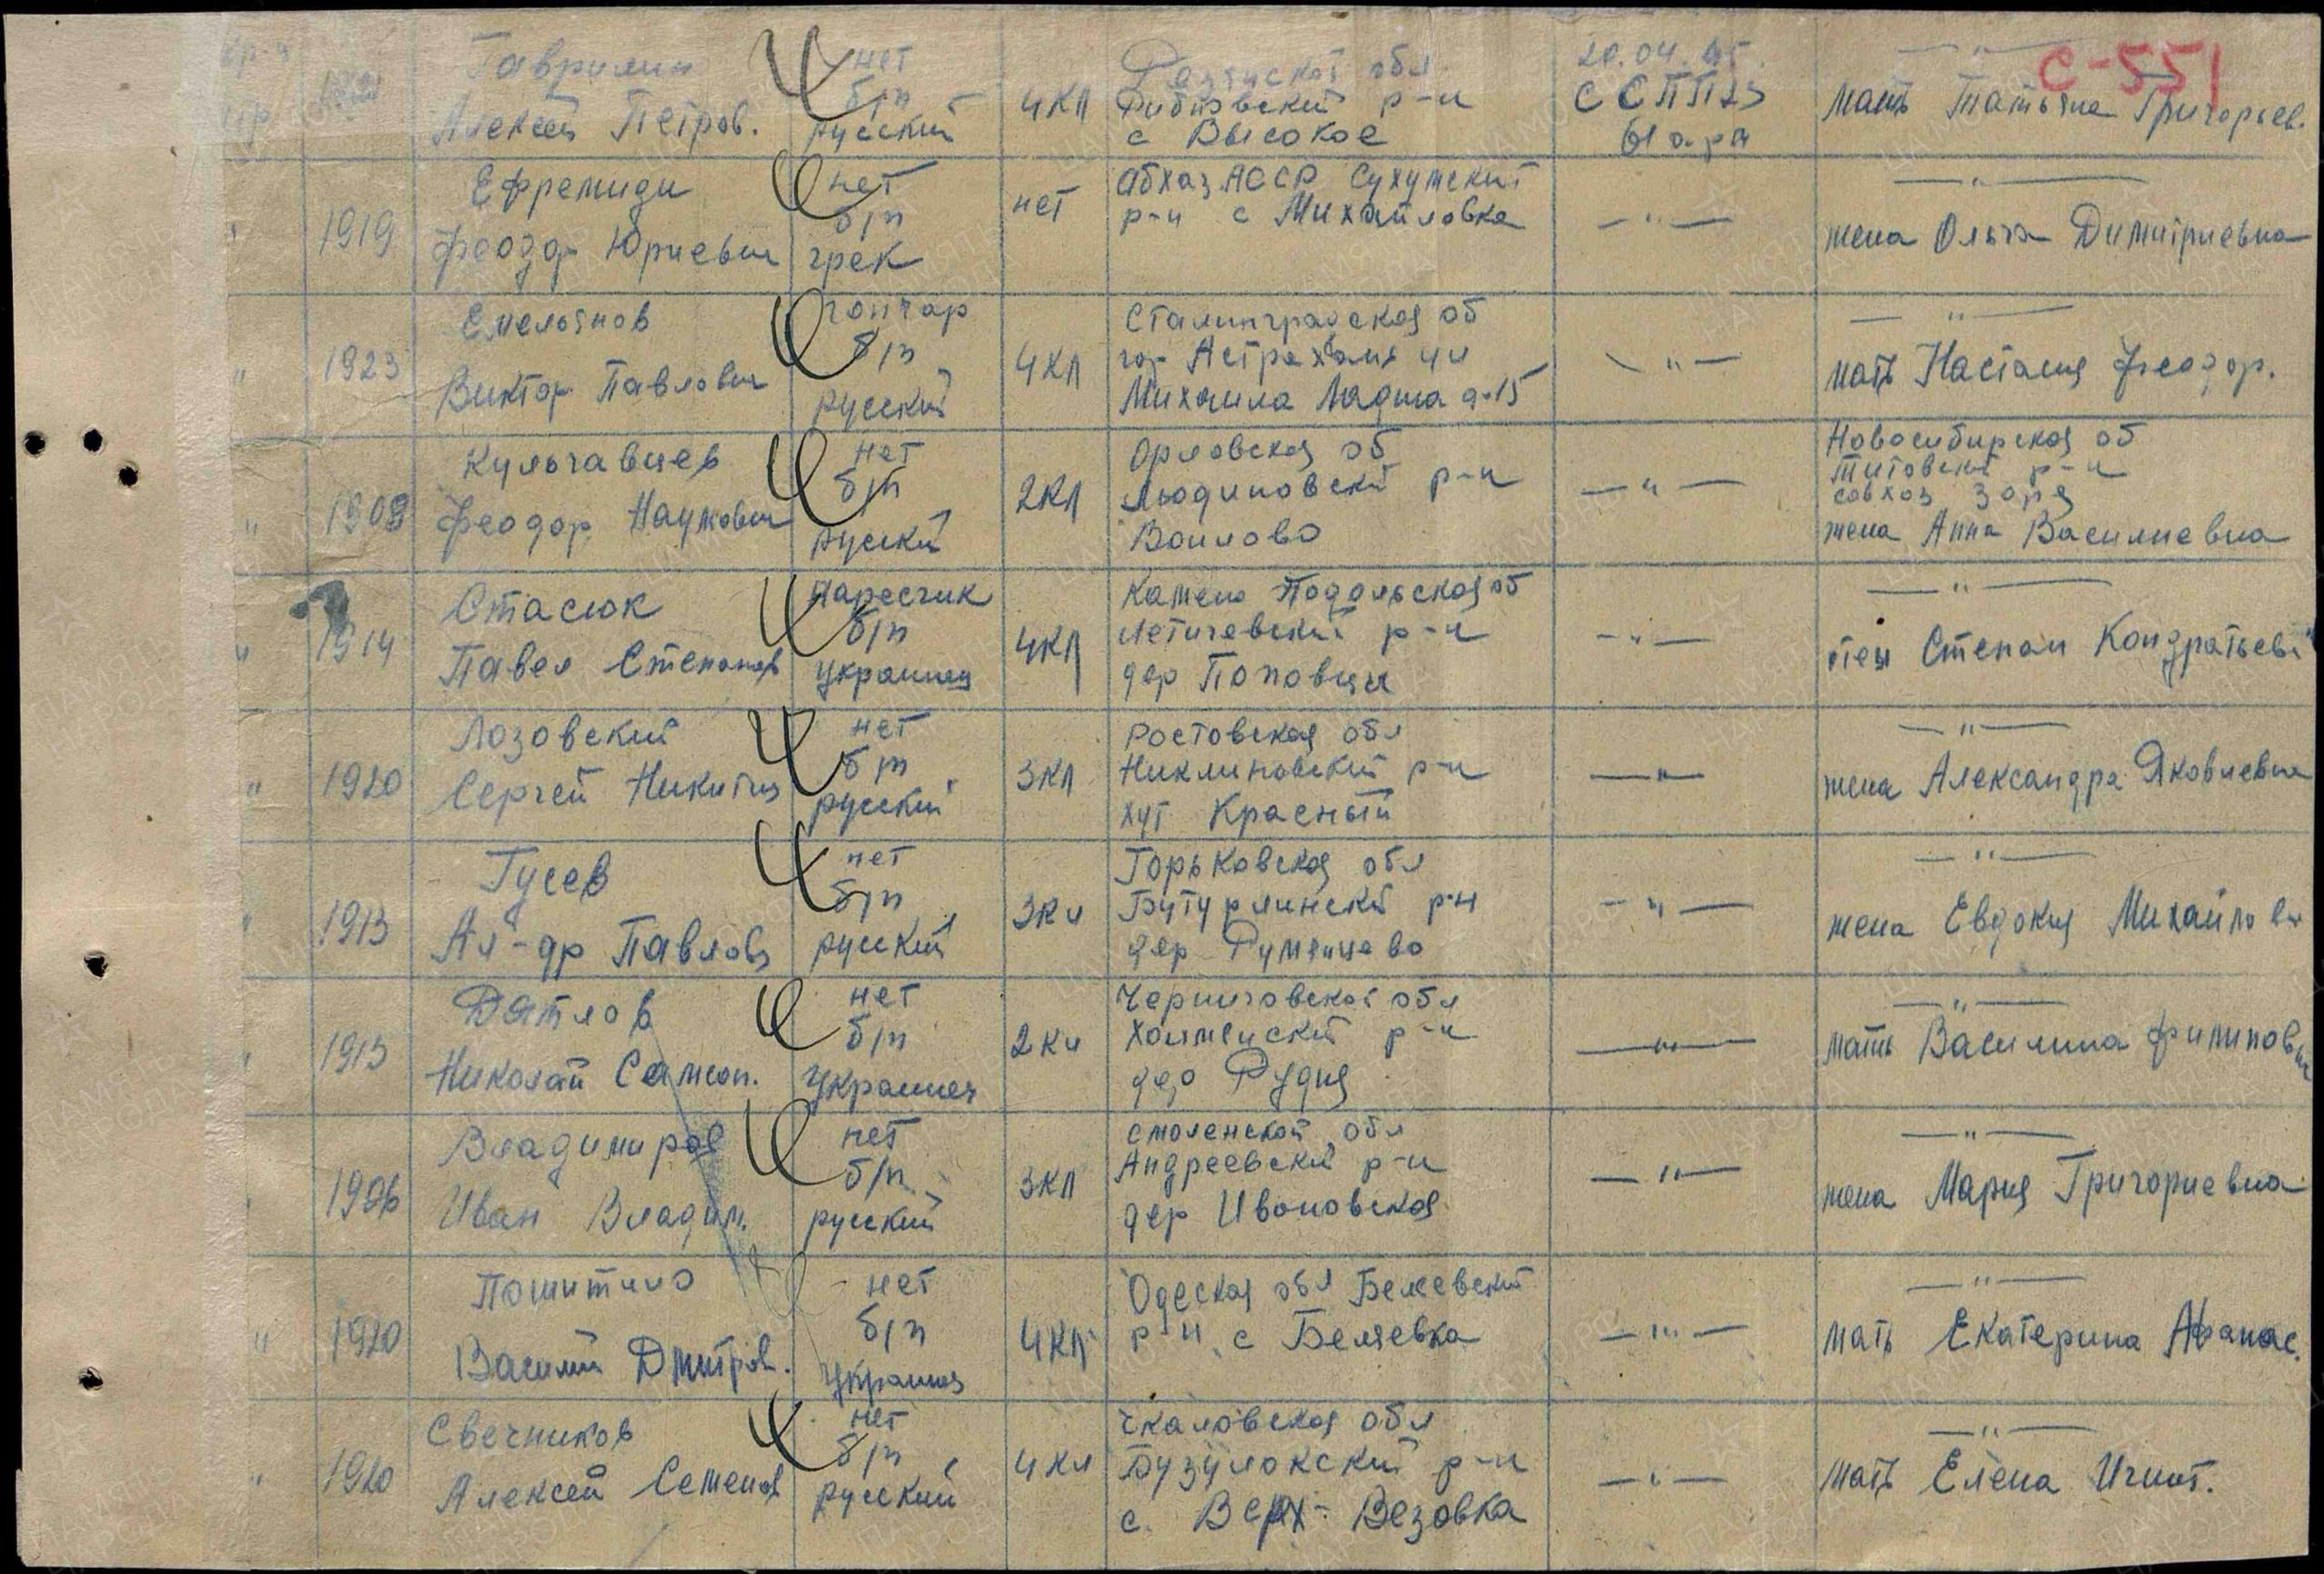 С-551
Гаврилин
Алексей Петров.
нет
б/п
русский
4кл
Рязанской обл
Рыбновский р-н
с Высокое
20.04.45
ССПП23
61 арм
— " —
мать Татьяна Григорьев.
1919
Ефремиди
Феодор Юриевич
нет
б/п
грек
нет
Абхаз.АССР Сухумский
р-н с Михайловка
— " —
— " —
жена Ольга Димитриевна
"
1923
Емельянов
Виктор Павлович
гончар
б/п
русский
4кл
Сталинградская об
гор Астрахань ул
д-15
— " —
— " —
мать Настасия Феодор.
"
1908
Кульгавцев
Феодор Наумович
нет
б/п
русский
2кл
Орловская об
Людиновский р-н
Воилово
— " —
Новосибирская об
Титовский р-н
совхоз Заря
жена Анна Василиевна
"
1914
Стасюк
Павел Степанов
б/п
украинец
4кл
Камено Подольская об
Летичевский р-н
дер Поповцы
— " —
— " —
отец Степан Кондратьев
"
1920
Лозовский
Сергей Никитич
нет
б/п
русский
3кл
Ростовская обл
Никлиновский р-н
хут Красный
— " —
— " —
жена Александра Яковлевна
"
1913
Гусев
Ал-др Павлов
нет
б/п
русский
3кл
Горьковская обл
Бутурлинский р-н
дер Румянцево
— " —
— " —
жена Евдокия Михайлов
1913
Дятлов
Николай Самсон.
нет
б/п
украинец
2кл
Черниговской обл
Холменский р-н
дер Рудня
— " —
— " —
мать Василина Филипов
1906
Владимиров
Иван Владим.
нет
б/п
русский
3кл
Смоленской обл
Андреевский р-н
дер Ивановская
— " —
— " —
жена Мария Григориевна
"
1920
Пошитило
Василий Дмитров.
нет
б/п
украинец
4кл
Одеская обл Беляевский
р-н с Беляевка
— " —
— " —
мать Екатерина Афанас.
"
1920
Свечников
Алексей Семенов
нет
б/п
русский
4кл
Чкаловская обл
Бузулокский р-н
с. Верх-Везовка
— " —
— " —
мать Елена Игнат.